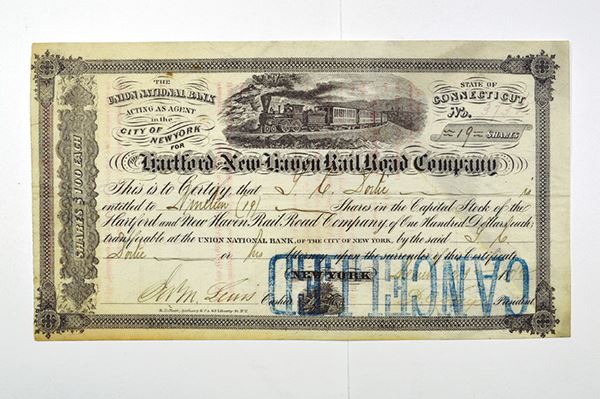 THE
UNION NATIONAL BANK
ACTING AS AGENT
in the
CITY OF NEW YORK
FOR
STATE OF
CONNECTICUT
No.
=19= SHARES
SHARES $100 EACH
THE Hartford & New Haven Rail Road Company
This is to Certify, that
is
entitled to Nineteen (19) Shares in the Capital Stock of the
Hartford and New Haven Rail Road Company, of One Hundred Dollars each;
transferable at the UNION NATIONAL BANK, OF THE CITY OF NEW YORK, by the said
or his Attorney upon the surrender of this Certificate.
NEW YORK
Wm Lewis Cashier President
CANCELLED
63 Liberty St. N.Y.